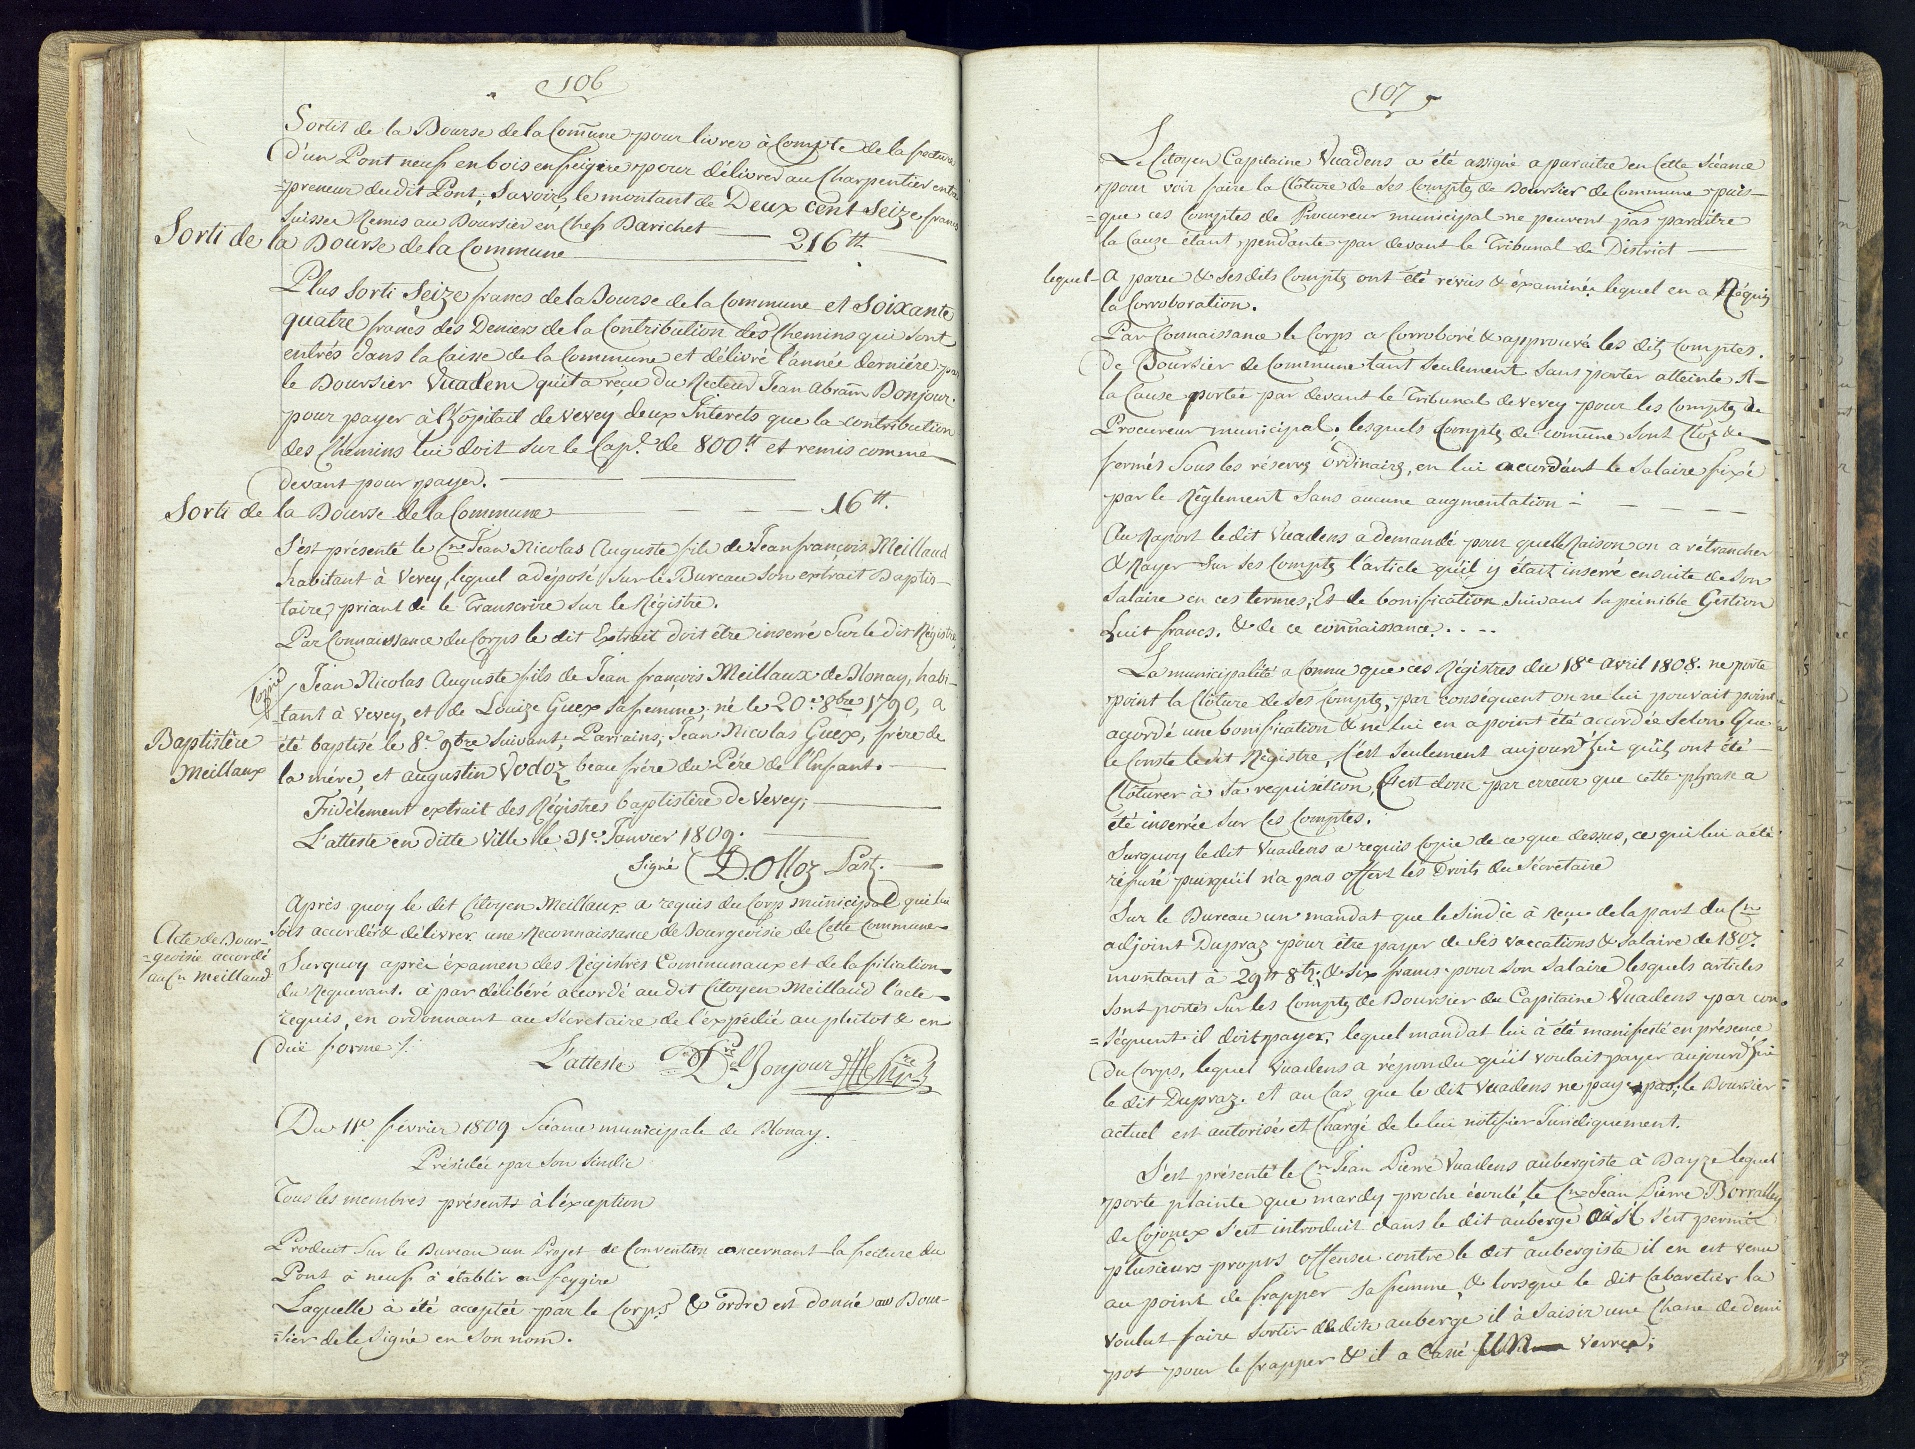 106
Sortit de la Bourse de la Com̄une pour livrer à Compte de la facture
d'un Pont neuf en bois en feigire pour délivrer au Charpentier entre
=preneur dudit Pont; Savoir, le montant de Deux cent Seize francs
Suisses Remis au Boursier en Chef Barichet — 216 ₶
Sorti de la Bourse de la Commune
Plus Sorti Seize francs de la Bourse de la Commune et Soixante
quatre francs des Deniers de la Contribution des Chemins qui sont
entrés dans la Caisse de la Commune et délivré l'année derniére par
le Boursier Vuadens qu'il a reçu du Recteur Jean Abram Bonjour.
pour payer à l'hopitail de Vevey deux Interets que la contribution
des Chemins lui doit sur le Cap.l de 800 ₶ et remis comme
devant pour payer.
Sorti de la Bourse de la Commune — 16 ₶.
S'est présenté le C.n Jean Nicolas Auguste fils de Jean françois Meillaud
habitant à Vevey, lequel a déposé sur le Bureau son extrait Baptis-
taire, priant de le Transcrire sur le Régistre.
Par Connaissance du Corps le dit Extrait doit être inserré Sur le dit Régistre.
Copie
Jean Nicolas Auguste fils de Jean françois Meillaux de Blonay, habi-
tant à Vevey, et de Louize Guex sa femme; né le 20.e 8bre 1790, a
Baptistère
Meillaux
été baptisé le 8.e 9bre Suivant; Parrains, Jean Nicolas Guex, frére de
la mére, et augustin Vodoz beau frére du Pére de l'Enfant.
Fidélement extrait des Régistres baptistère de Vevey;
L'atteste en ditte Ville le 31e Janvier 1809.
Signé D. Olloz Past.
Après quoy le dit Citoyen Meillaux a requis du Corps municipal qui lui
Acte de Bour-
=geoisie accordé
au C.n Meillaud
soit accordér & délivrer une Reconnaissance de Bourgeoisie de Cette Commune
Surquoy aprèr éxamen des Régistrés Communaux et de la filiation
du Requerant. à par délibéré accordé au dit Citoyen Meillaud l'acte
requis, en ordonnant au Sécretaire de l'expédié au plutot & en
düe forme ⁒
L'atteste Bonjour
Du 11e février 1809 Séance municipale de Blonay.
Présidée par Son Sindic
Tous les membres présents à l'éxception
Produit Sur le Bureau un Projet de Convention concernant la facture du
Pont à neuf à établir en feygire
Laquelle à été acceptée par le Corps & ordre est donné au Bour-
=sier de le Signé en Son nom.
107
Le Citoyen Capitaine Vuadens a été assigné a paraitre en Cette Séance
pour voir faire la Clôture de Ses Comptes de Boursier de Commune puis-
=que ces Comptes de Procureur municipal ne peuvent pas paraitre
la Cause étant pendante par devant le Tribunal de District
lequel a paru & Ses dits Comptes ont été révus & éxaminés lequel en a Réquis
la Corroboration.
Par Connaissance le Corps a Corroboré & approuvé les dits Comptes.
de Boursier de Commune tant Seulement Sans porter atteinte A
la Cause portée par devant le Tribunal de Vevey pour les Comptes de
Procureur municipal. lesquels Comptes de comūne Sont Clos &
formés Sous les réserves ordinaires, en lui accordant le Salaire fixé
par le Réglement Sans aucune augmentation
Au Raport le dit Vuadens a demandé pour quelle Raison on a rétrancher
& Rayer Sur Ses Comptes l'article qu'il y était inserré ensuite de Son
Salaire en ces termes, Et de bonification Suivant Sa peinible Gestion
huit francs. & de ce connaissance. . . . .
La municipalité a Connu que ces Régistres du 18e avril 1808. ne porte
point la Clôture de Ses Comptes, par Conséquent on ne lui pouvait point
acordé une bonification & ne lui en a point été accordée Selon Que
le Conste le dit Régistre, C'est Seulement aujourd'hui qu'ils ont été
Clôturer à Sa requisition, C'est donc par erreur que cette phrase a
été inserrée Sur les Comptes.
Surquoy le dit Vuadens a requis Copie de ce que dessus, ce qui lui a été
réfusé puisqu'il n'a pas offert les Droits du Sécretaire
Sur le Bureau un mandat que le Sindic à reçu de la part du C.n
adjoint Dupraz pour être payer de Ses vaccations & Salaire de 1807.
montant à 29 ₶ 8 & Six francs pour Son Salaire lesquels articles
Sont portés Sur les Comptes de Boursier du Capitaine Vuadens par con
=séquent il doit payer; lequel mandat lui à été manifesté en présence
du Corps, lequel Vuadens a répondu qu'il voulait payer aujourd'hui
le dit Dupraz. et au Cas que le dit Vuadens ne paye pas, le Boursier
actuel est autorisé et Chargé de le lui notifier Juridiquement.
S'est présenté le C.n Jean Pierre Vuadens aubergiste à Bayze lequel
porte plainte que mardy proche écoulé, le C.n Jean Pierre Borralley
de Cojonex S'est introduit dans le dit auberge Où il S'est permis
plusieurs propos offensés contre le dit aubergiste il en est venu
au point de frapper Sa femme, & lorsque le dit Cabaretier la
voulut faire Sortir dudite auberge il à Saisir une Chane de demi
pot pour le frapper & il a Cassé un verre;